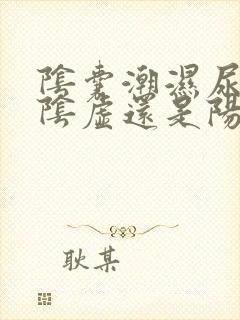 陰囊潮濕尿
陰虛還是陽
耿某